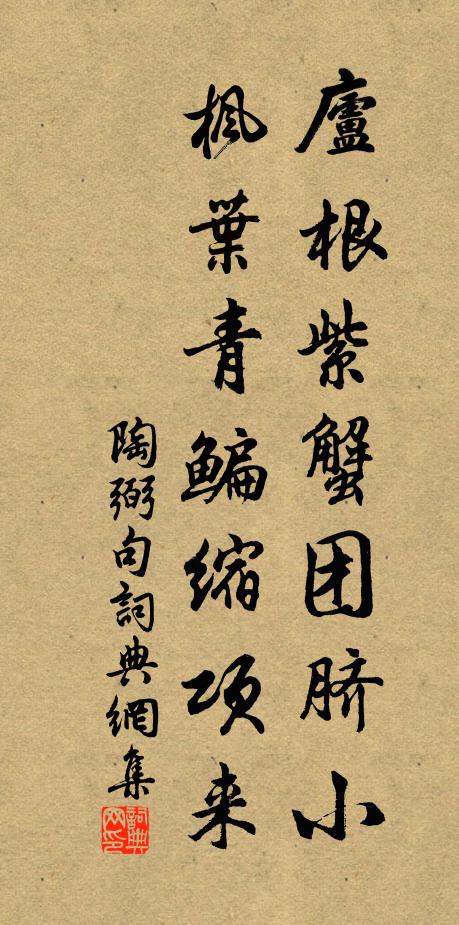 廬根紫蟹团脐小
枫葉青鳊缩项来
陶弼句詞典網集
詞典网印